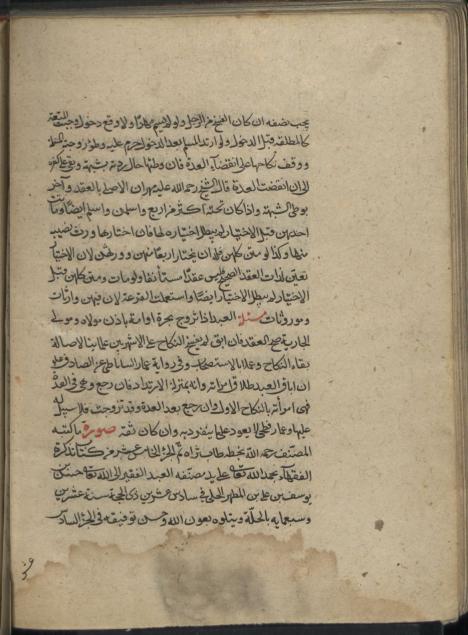 يجب نصفه ان كان الفسخ من الرجل ولو لم يسم مهرا ولا وقع دخول وجبت المتعة
كالمطلقة قبل الدخول ولو ارتد المسلم بعد الدخول حرم عليه وطؤ زوجته المسلمة
ووقف نكاحها على انقضاء العدة فان وطئها حال ردته بشبهة وبقي على كفره
الى ان انقضت العدة قال الشيخ رحمه الله عليه مهران الاصلي بالعقد وآخر
بوطي الشبهة واذا كان تحته اكثر من اربع واسلمن واسلم ايضا وماتت
احديهن قبل الاختيار لم يبطل اختياره لها فان اختارها ورث نصيبه
منها وكذا لو متن كلهن فله ان يختار اربعا منهن وورثهن لان الاختيار
تعيين لذات العقد الصحيح وليس عقدا مستأنفا ولو مات ومتن كلهن قبل
الاختيار لم يبطل الاختيار ايضا واستعملت القرعة لان فيهن وارثات
وموروثات مسئلة العبد اذا تزوج بحرة او امة باذن مولاه ومولى
الجارية صح العقد فان ابق لم ينفسخ النكاح على الاشهر بين علمائنا لاصالة
بقاء النكاح وعملا بالاستصحاب وفي رواية عمار الساباطي عن الصادق ع
ان اباق العبد طلاق امراته وانه بمنزلة الارتداد فان رجع وهي في العدة
فهي امرأته بالنكاح الاول وان رجع بعد العدة وقد تزوجت فلا سبيل له
عليها وعمار فطحي لا يعود على ما ينفرد به وان كان ثقة صورة ما كتبه
المصنف رحمه الله بخطه طاب ثراه تم الجزء الخامس عشر من كتاب تذكرة
الفقهاء بحمد الله تعالى على يد مصنفه العبد الفقير الى الله تعالى حسن بن
يوسف بن علي بن المطهر الحلي في سادس عشرين ذي الحجة سنة عشرين
وسبعمايه بالحلة ويتلوه بعون الله وحسن توفيقه في الجزء السادس
عشر